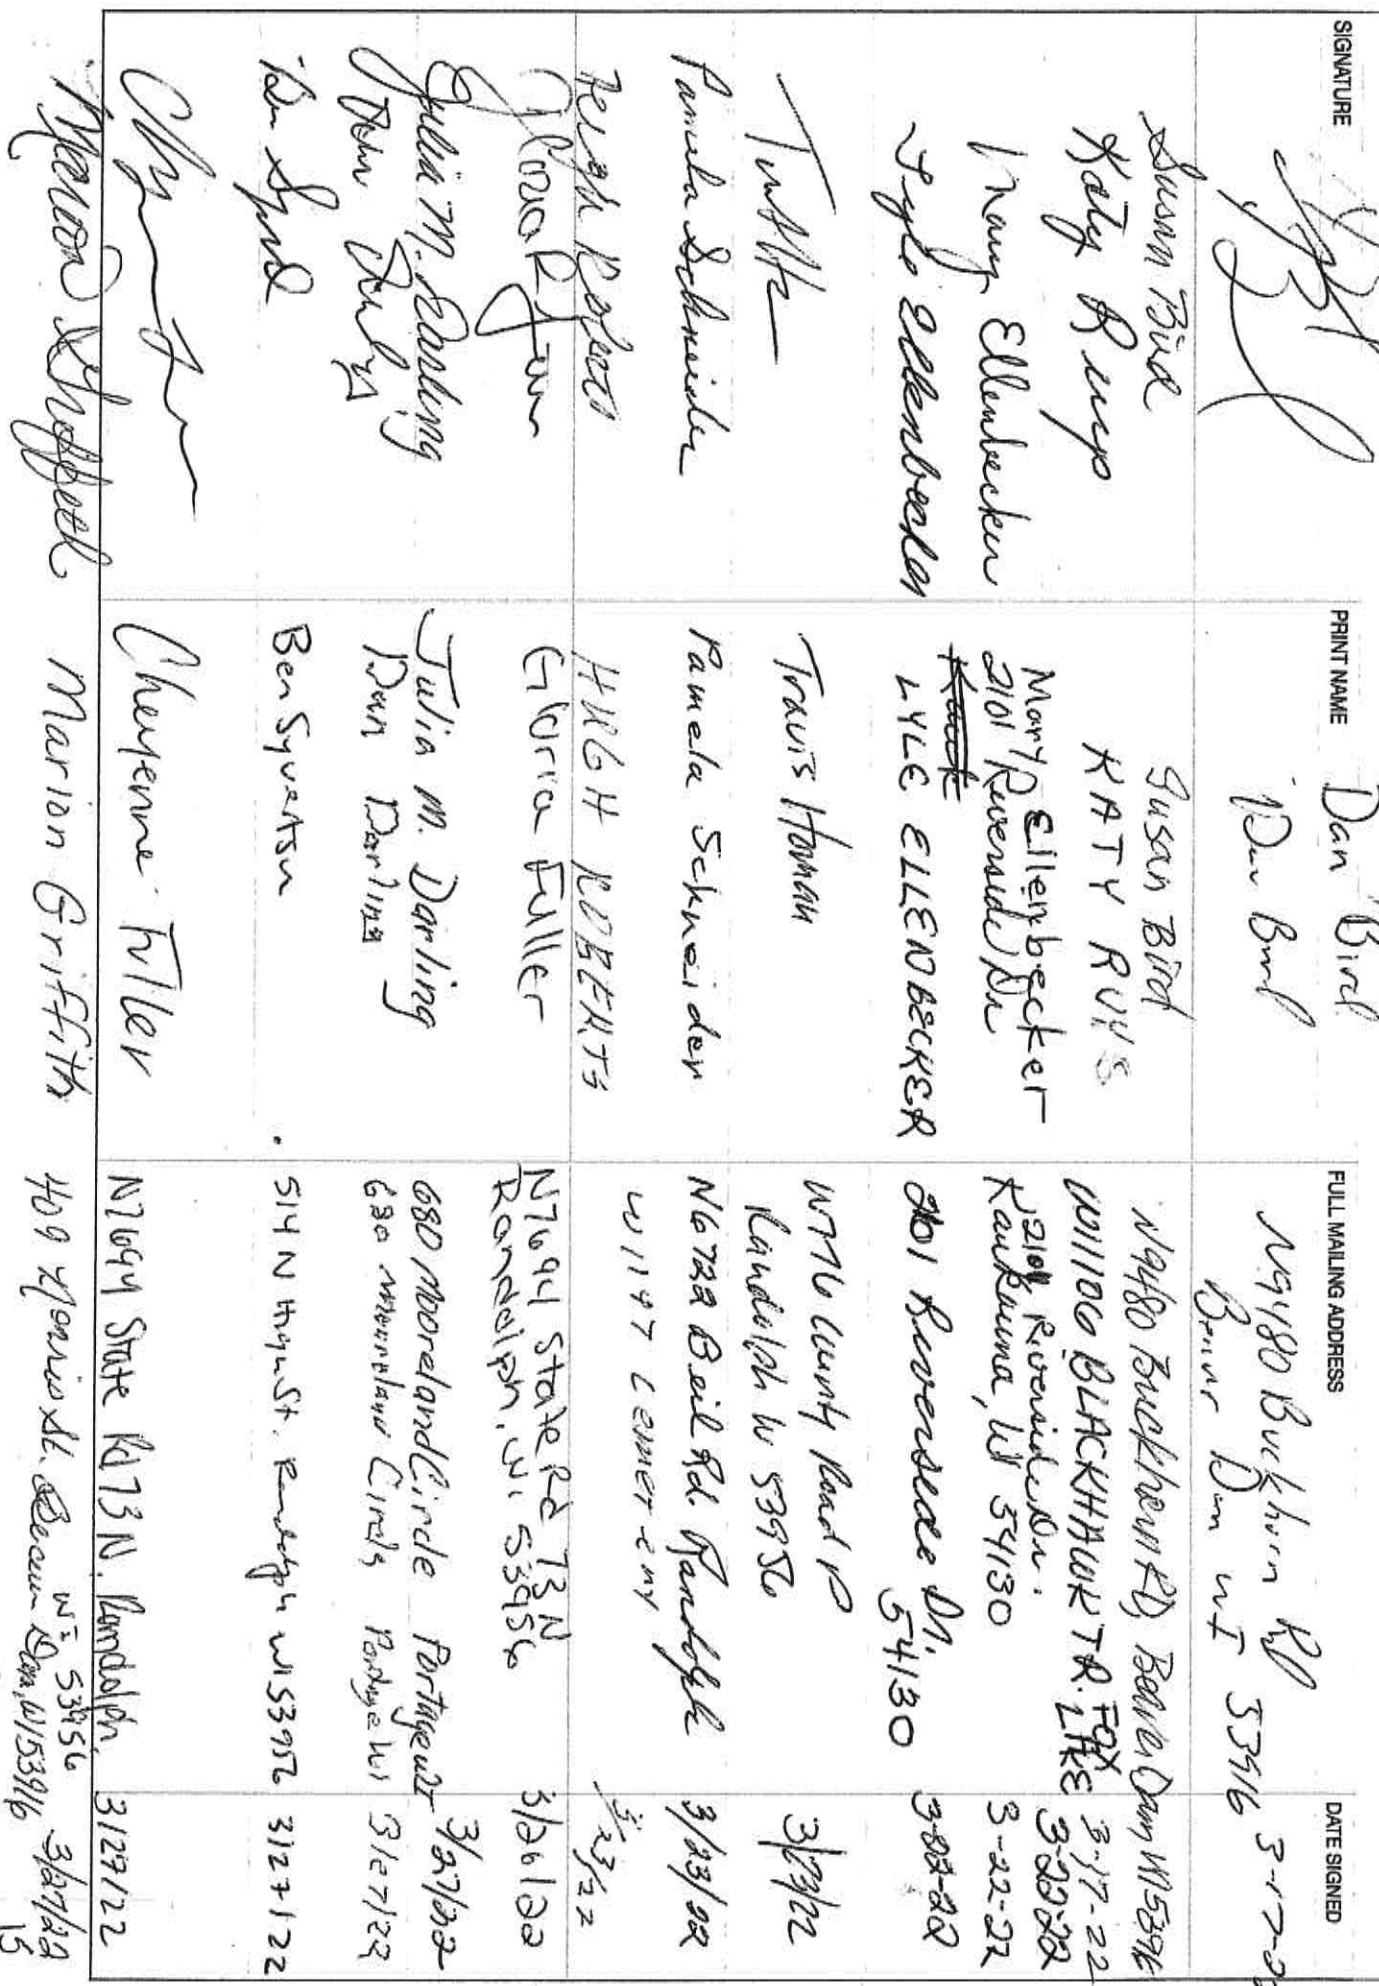 SIGNATURE PRINT NAME FULL MAILING ADDRESS DATE SIGNED
Dan Bird N9480 Buckhorn Rd
Beaver Dam WI 53916 3-17-2
Susan Bird Susan Bird N9480 Buckhorn Rd, Beaver Dam WI 53916
Katy Ruys KATY RUYS W11106 BLACKHAWK TR. FOX LAKE 3-17-22
3-22-22
Mary Ellenbecker Mary Ellenbecker 2101 Riverside Dr.
2101 Riverside Dr Kaukauna, WI 54130 3-22-22
Lyle Ellenbecker LYLE ELLENBECKER 2101 Riverside Dr. 54130 3-22-22
Travis Homan W776 County Road P
Randolph WI 53956 3/23/22
Pamela Schneider Pamela Schneider N6722 Beil Rd. Randolph 3/23/22
Hugh Roberts HUGH ROBERTS W1147 3/23/22
Gloria Fuller Gloria Fuller N7694 State Rd 73 N
Randolph, Wi 53956 3/26/22
Julia M. Darling Julia M. Darling 680 Mooreland Circle Portage WI 3/27/22
Dan Darling Dan Darling 680 Mooreland Circle Portage WI 3/27/22
Ben Syvertson 514 N High St. Randolph WI 53956 3/27/22
Cheyenne Fuller N7694 State Rd 73 N. Randolph, WI 53956 3/27/22
Marion Griffith Marion Griffith 409 St. Beaver Dam, WI 53916 3/27/22
15